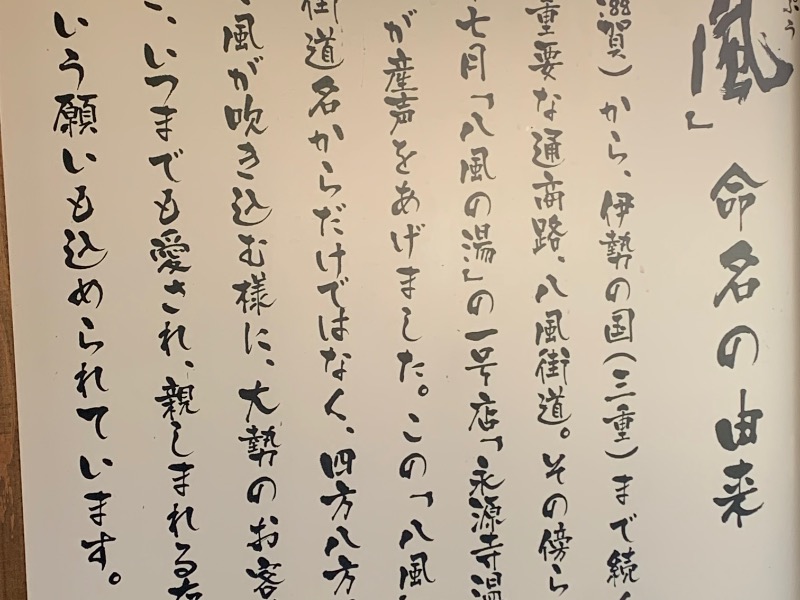 風」 命名の由来
滋賀）から、伊勢の国（三重）まで続く
重要な通商路、八風街道。その傍ら
七月「八風の湯」の一号店「永源寺温
が産声をあげました。この「八風
街道名からだけではなく、四方八方
風が吹き込む様に、大勢のお客
、いつまでも愛され、親しまれる
いう願いも込められています。